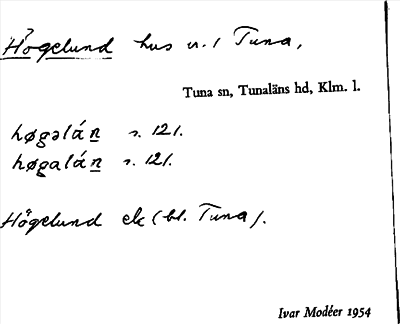 Högelund hus n. i Tuna,
Tuna sn, Tunaläns hd, Klm. l.
høgəlán s. 121.
høgalán s. 121.
Högelund ek (bl. Tuna).
Ivar Modéer 1954